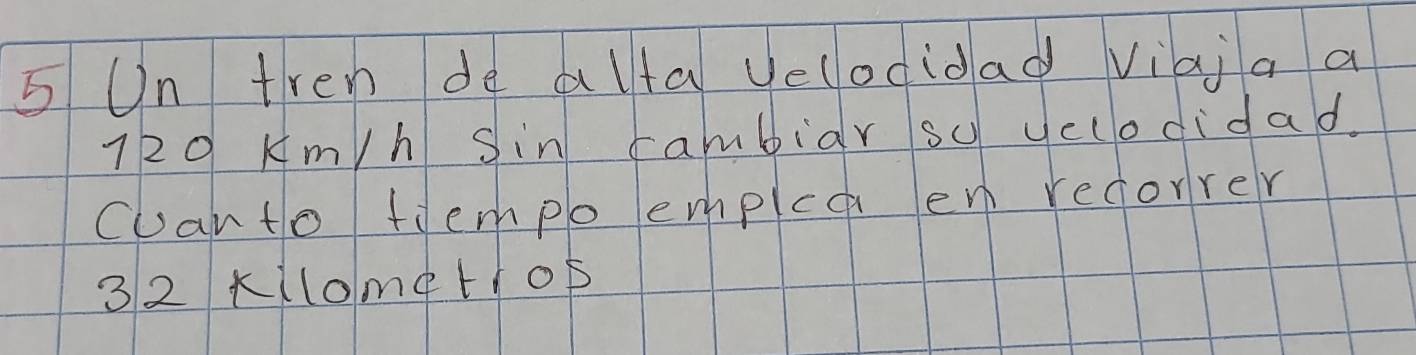 5 Un tren de alta velocidad viaja a
120 Km/h sin cambiar su velocidad.
Cuanto tiempo emplea en recorrer
32 Kilometros